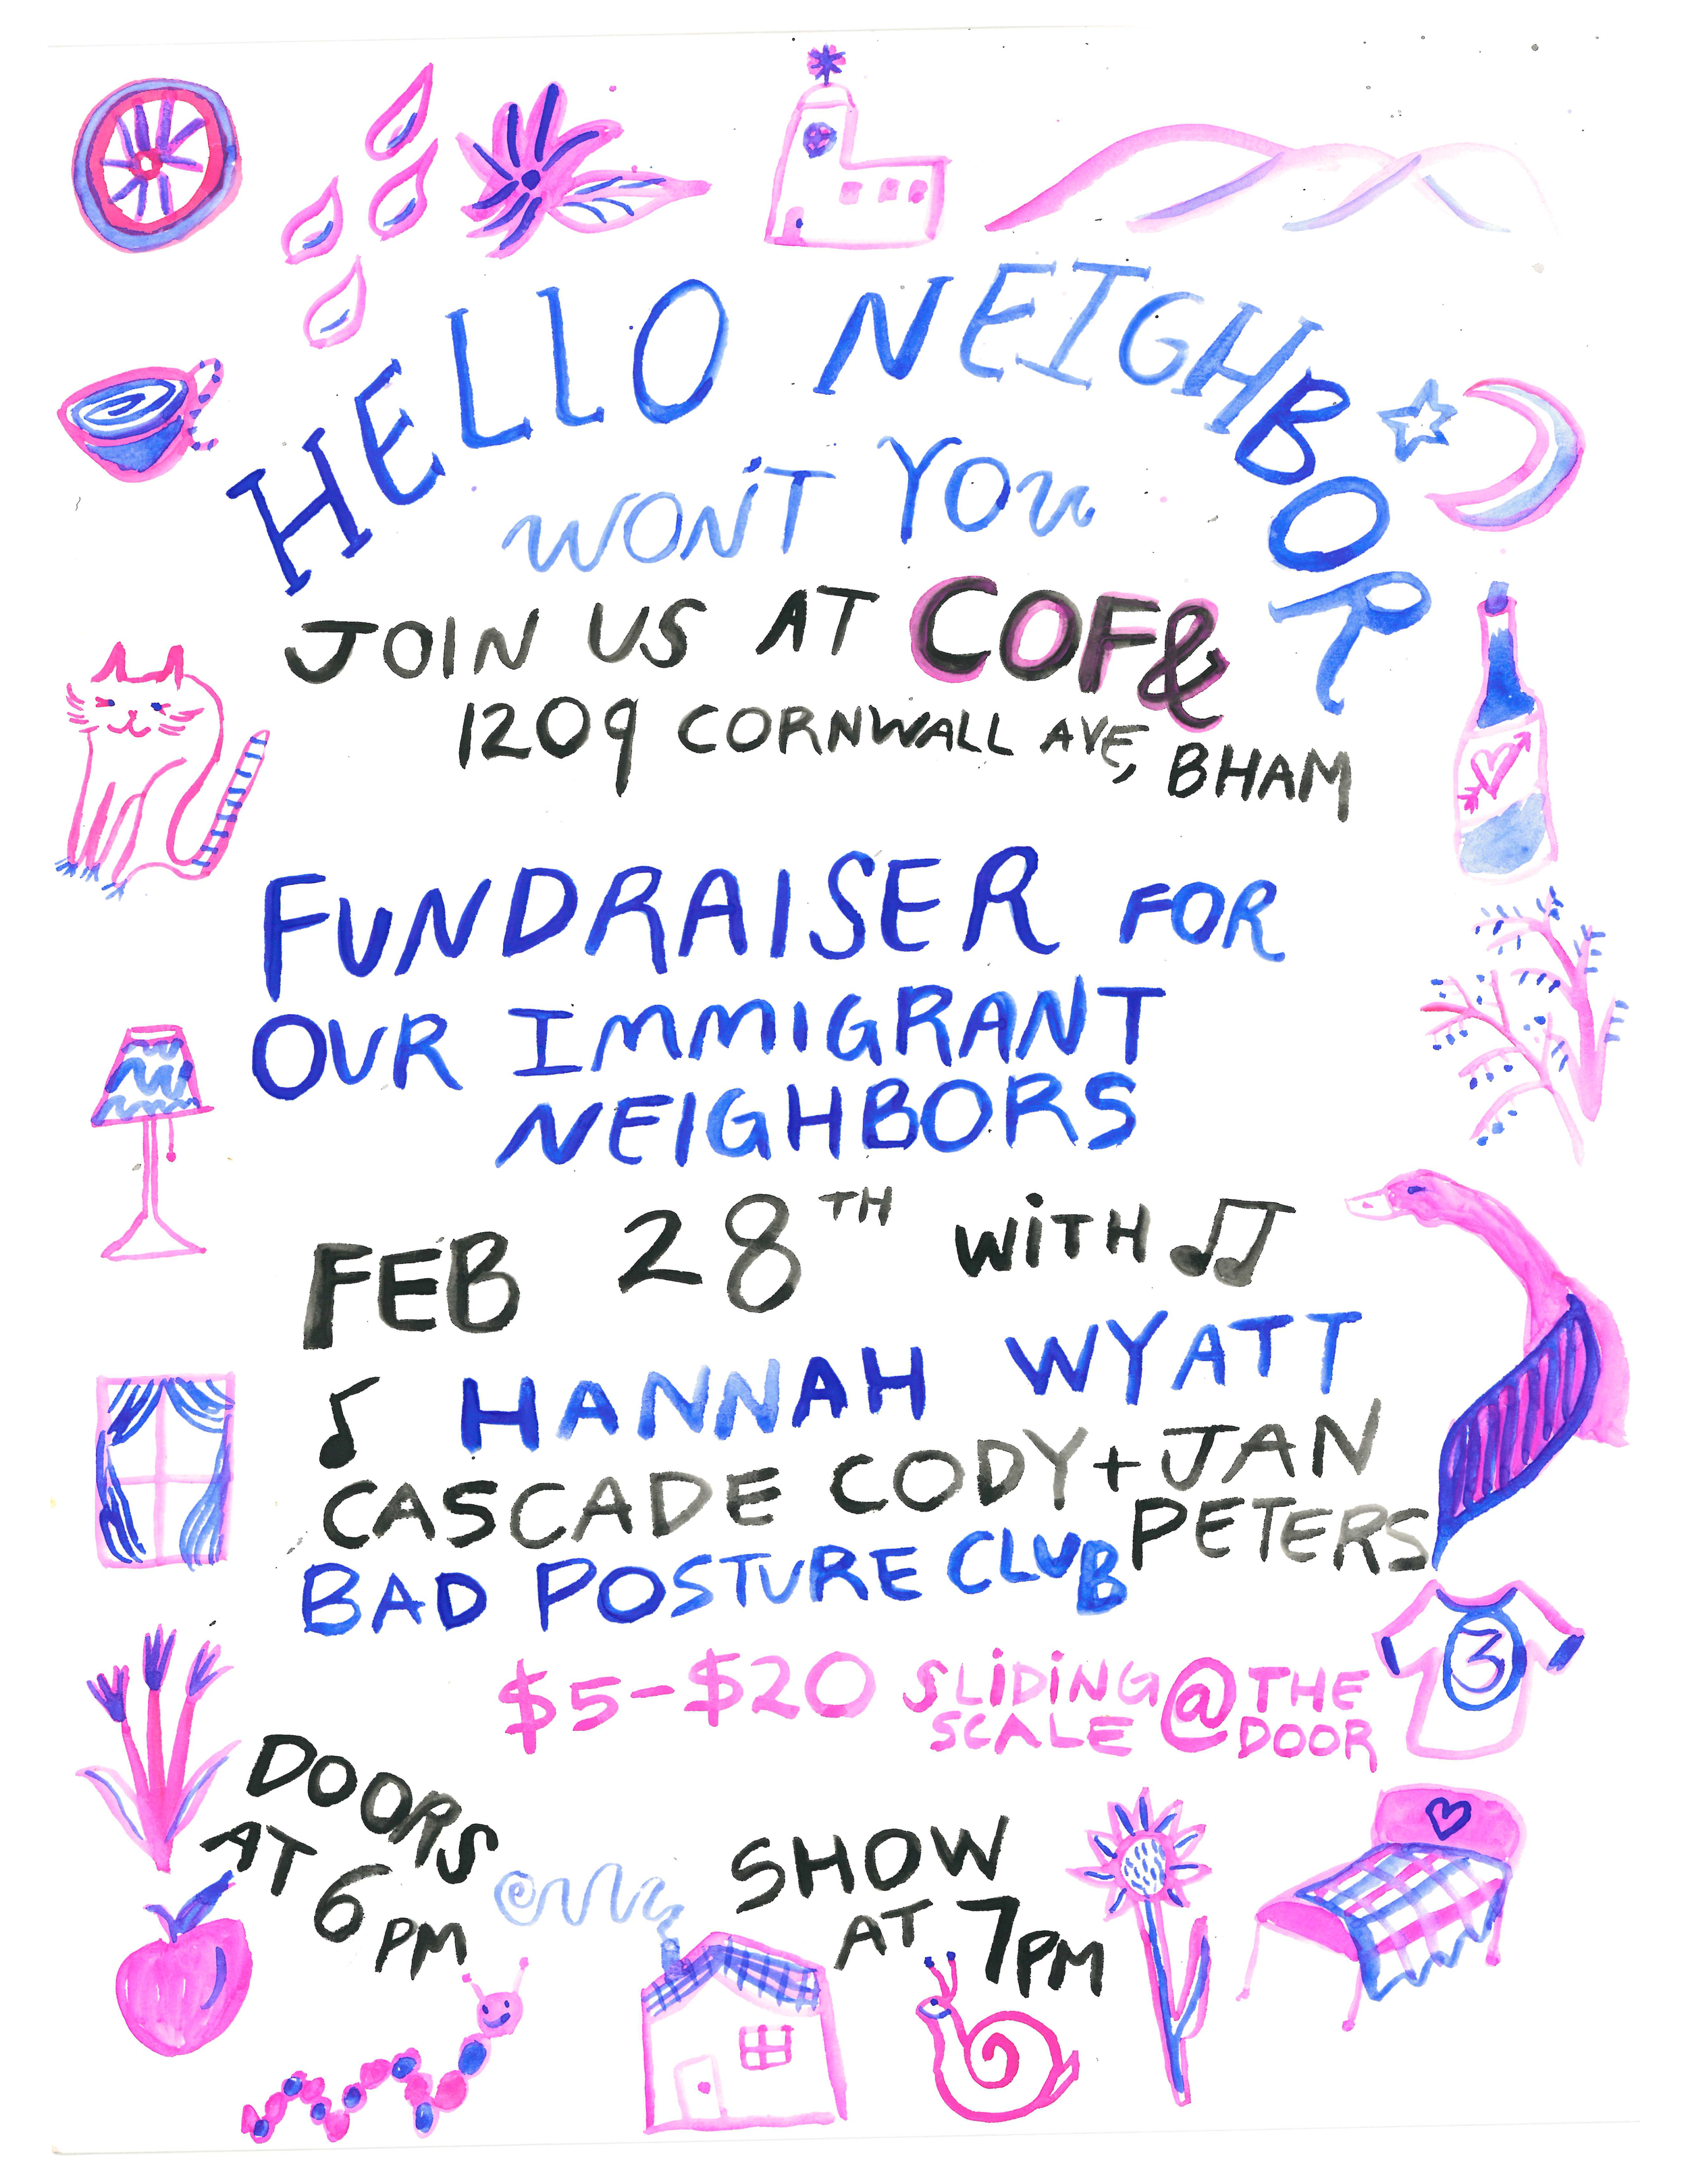 HELLO NEIGHBOR
WON'T YOU
JOIN US AT COF&
1209 CORNWALL AVE, BHAM
FUNDRAISER FOR
OUR IMMIGRANT
NEIGHBORS
FEB 28TH WITH
HANNAH WYATT
CASCADE CODY + JAN PETERS
BAD POSTURE CLUB
$5-$20 SLIDING SCALE @ THE DOOR
3
DOORS
AT 6 PM
SHOW
AT 7PM